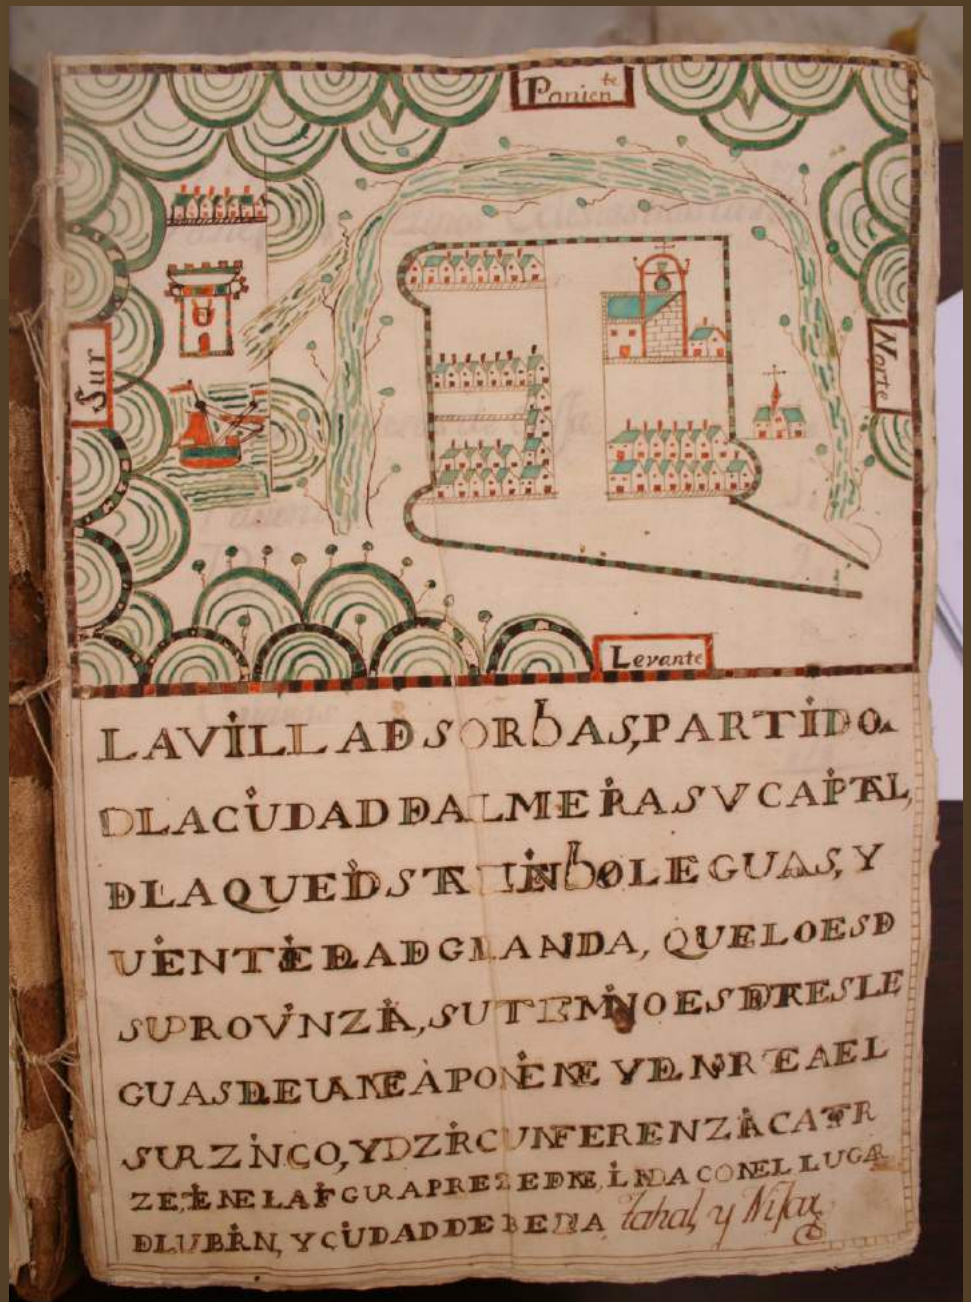 Ponien.te
Sur
Norte
Levante
LA VILLA D SORBAS, PARTIDO
D LA CIUDAD D ALMERIA SV CAPITAL,
D LA QUE DISTA OLEGUAS, Y
VEINTE D LA D GRANADA, QUE LO ES D
SU PROVINZIA, SU TERMINO ES D TRES LE
GUAS D LEVANTE À PONIENTE Y D NORTE A EL
SUR ZINCO, Y D ZIRCUNFERENZIA CATOR
ZE, TIENE LA FIGURA PREZEDENTE, LINDA CON EL LUGAR
D LUBRIN, Y CIUDAD DE BERA Tahal, y Nijar